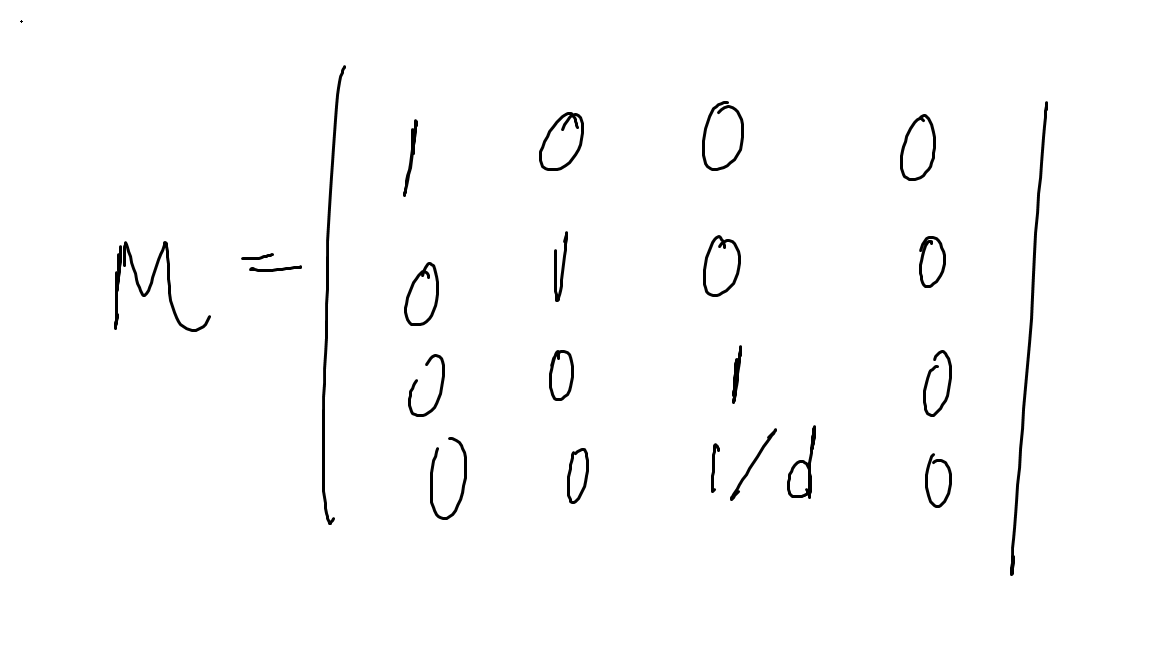 M = | 1 0 0 0 |
0 1 0 0
0 0 1 0
0 0 1/d 0